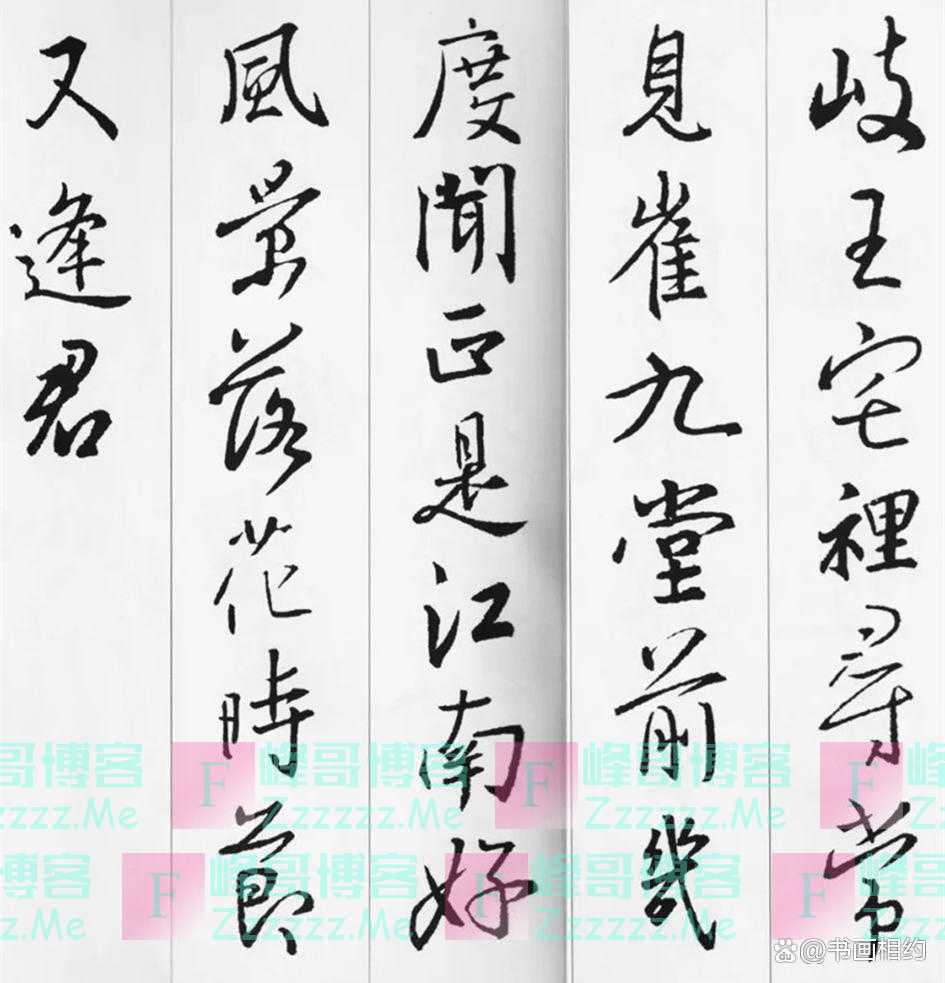 岐王宅裡尋常
見崔九堂前幾
度聞正是江南好
風景落花時節
又逢君
峰哥博客
Zzzzzz.Me
F 峰哥博客
Zzzzzz.Me
F 峰哥博客
Zzzzzz.Me
F
F 峰哥博客
Zzzzzz.Me
F 峰哥博客
Zzzzzz.Me
F
@书画相约